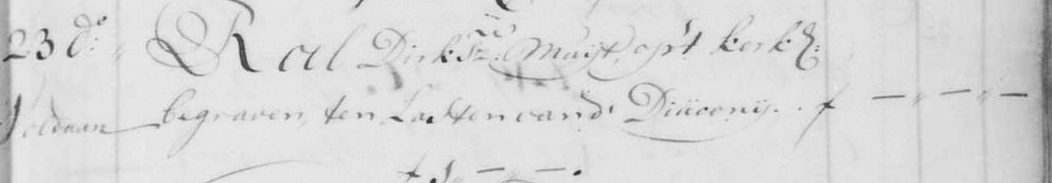 23 do: Ral Dirksz: Muijt, op't kerkh:
Voldaan begraven, ten Lasten van d' Diaconij .. f — „ — „ —
f 3 „ — „ — .